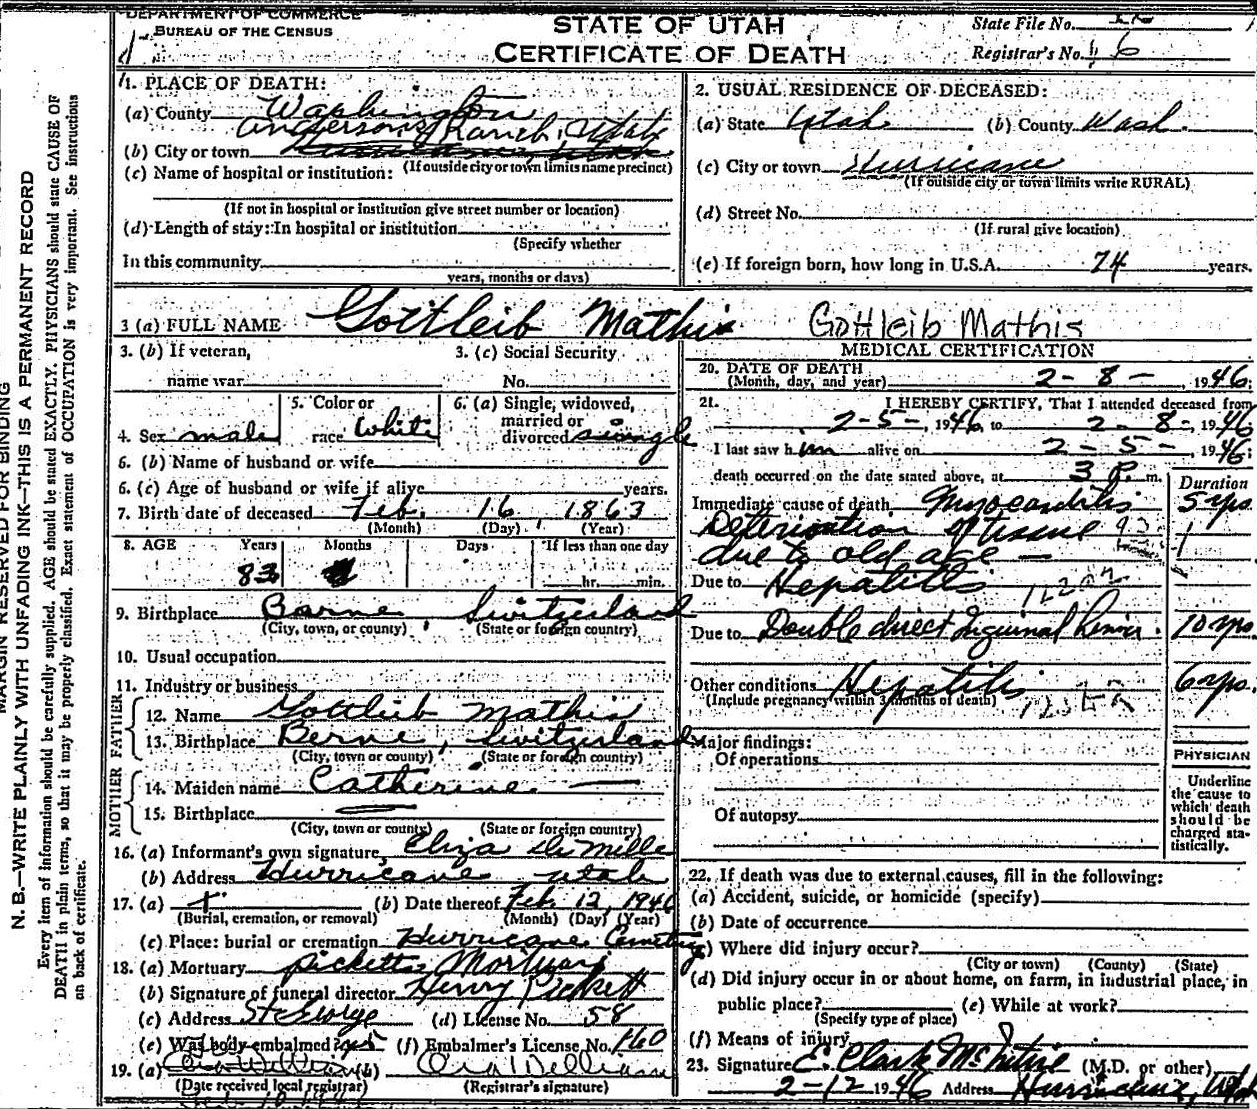 DEPARTMENT OF COMMERCE
BUREAU OF THE CENSUS
STATE OF UTAH
CERTIFICATE OF DEATH
State File No.
Registrar's No. 6
MARGIN RESERVED FOR BINDING
N. B.—WRITE PLAINLY WITH UNFADING INK—THIS IS A PERMANENT RECORD
Every item of information should be carefully supplied. AGE should be stated EXACTLY. PHYSICIANS should state CAUSE OF
DEATH in plain terms, so that it may be properly classified. Exact statement of OCCUPATION is very important. See instructions
on back of certificate.
1. PLACE OF DEATH:
(a) County Washington
Andersons Ranch, Utah
(b) City or town Hurricane, Utah
(If outside city or town limits name precinct)
(c) Name of hospital or institution:
(If not in hospital or institution give street number or location)
(d) Length of stay: In hospital or institution
(Specify whether
In this community
years, months or days)
2. USUAL RESIDENCE OF DECEASED:
(a) State Utah (b) County Wash.
(c) City or town Hurricane
(If outside city or town limits write RURAL)
(d) Street No.
(If rural give location)
(e) If foreign born, how long in U.S.A. 74 years.
3 (a) FULL NAME Gottleib Mathis Gottleib Mathis
3. (b) If veteran,
name war
3. (c) Social Security
No.
4. Sex male
5. Color or
race White
6. (a) Single, widowed,
married or
divorced single
6. (b) Name of husband or wife
6. (c) Age of husband or wife if alive years.
7. Birth date of deceased Feb. 16, 1863
(Month) (Day) (Year)
8. AGE Years Months Days If less than one day
83 hr. min.
9. Birthplace Barne, Switzerland
(City, town, or county) (State or foreign country)
10. Usual occupation
11. Industry or business
FATHER
12. Name Gottlieb Mathis
13. Birthplace Berne, Switzerland
(City, town or county) (State or foreign country)
MOTHER
14. Maiden name Catherine —
15. Birthplace —
(City, town or county) (State or foreign country)
16. (a) Informant's own signature Eliza DeMille
(b) Address Hurricane Utah
17. (a) x (b) Date thereof Feb 12, 1946
(Burial, cremation, or removal) (Month) (Day) (Year)
(c) Place: burial or cremation Hurricane Cemetery
18. (a) Mortuary Picketts Mortuary
(b) Signature of funeral director Henry Pickett
(c) Address St George (d) License No. 58
(e) Was body embalmed? yes (f) Embalmer's License No. 160
19. (a) (b) Ora Wellium
(Date received local registrar) (Registrar's signature)
MEDICAL CERTIFICATION
20. DATE OF DEATH
(Month, day, and year) 2-8-, 1946;
21. I HEREBY CERTIFY, That I attended deceased from
2-5-, 1946, to 2-8-, 1946
I last saw him alive on 2-5-, 1946;
death occurred on the date stated above, at 3 P. m.
Duration
Immediate cause of death Myocarditis 5 yrs.
Deterioration of tissue
due to old age —
Due to Hepatitis
Due to Double direct Inguinal Hernia. 10 yrs.
Other conditions Hepatitis 6 yrs.
(Include pregnancy within 3 months of death)
Major findings:
Of operations
Of autopsy
PHYSICIAN
Underline
the cause to
which death
should be
charged sta-
tistically.
22. If death was due to external causes, fill in the following:
(a) Accident, suicide, or homicide (specify)
(b) Date of occurrence
(c) Where did injury occur?
(City or town) (County) (State)
(d) Did injury occur in or about home, on farm, in industrial place, in
public place? (e) While at work?
(Specify type of place)
(f) Means of injury
23. Signature E. Clark McIntire (M.D. or other)
2-12 1946 Address Hurricane, Utah